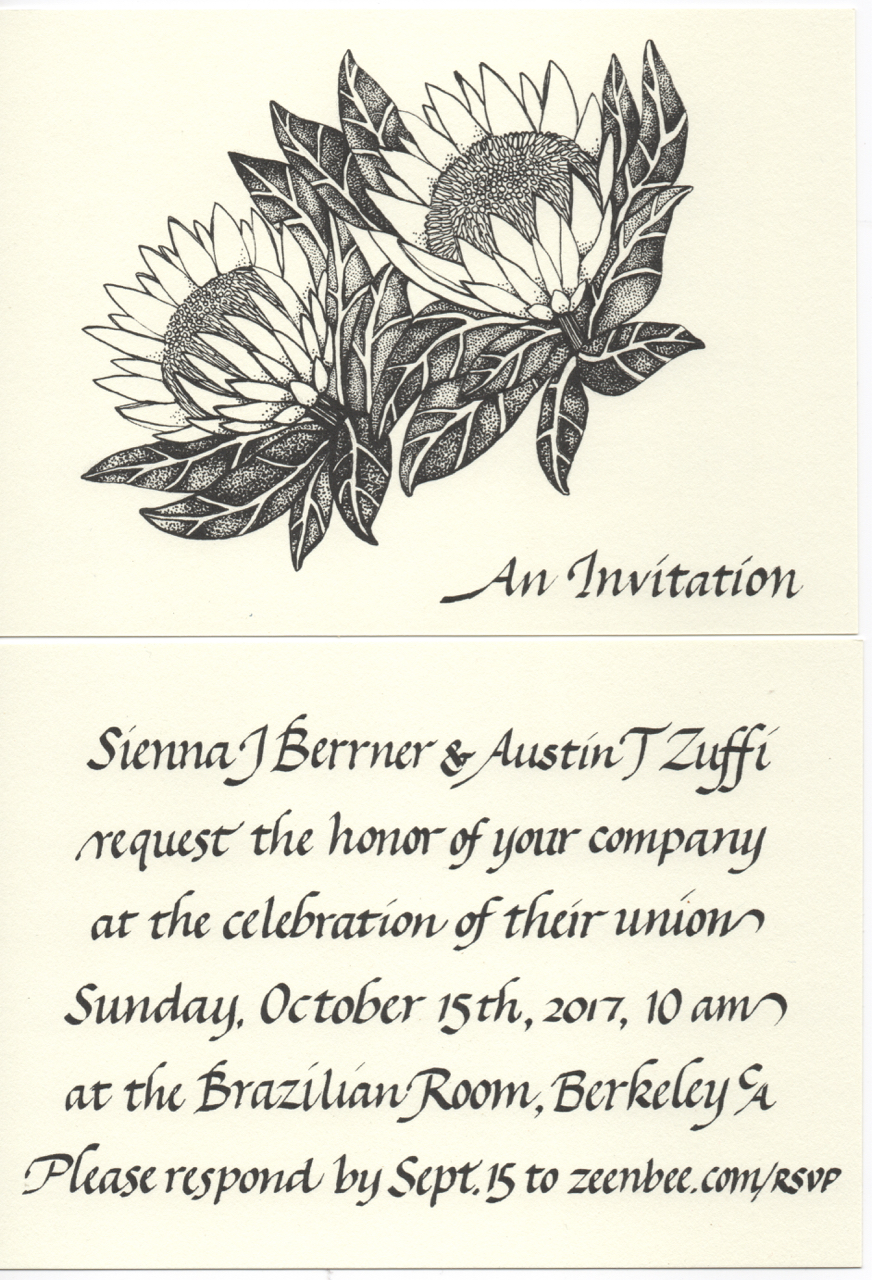 An Invitation
Sienna J Berrner & Austin T Zuffi
request the honor of your company
at the celebration of their union
Sunday, October 15th, 2017, 10 am
at the Brazilian Room, Berkeley CA
Please respond by Sept. 15 to zeenbee.com/RSVP